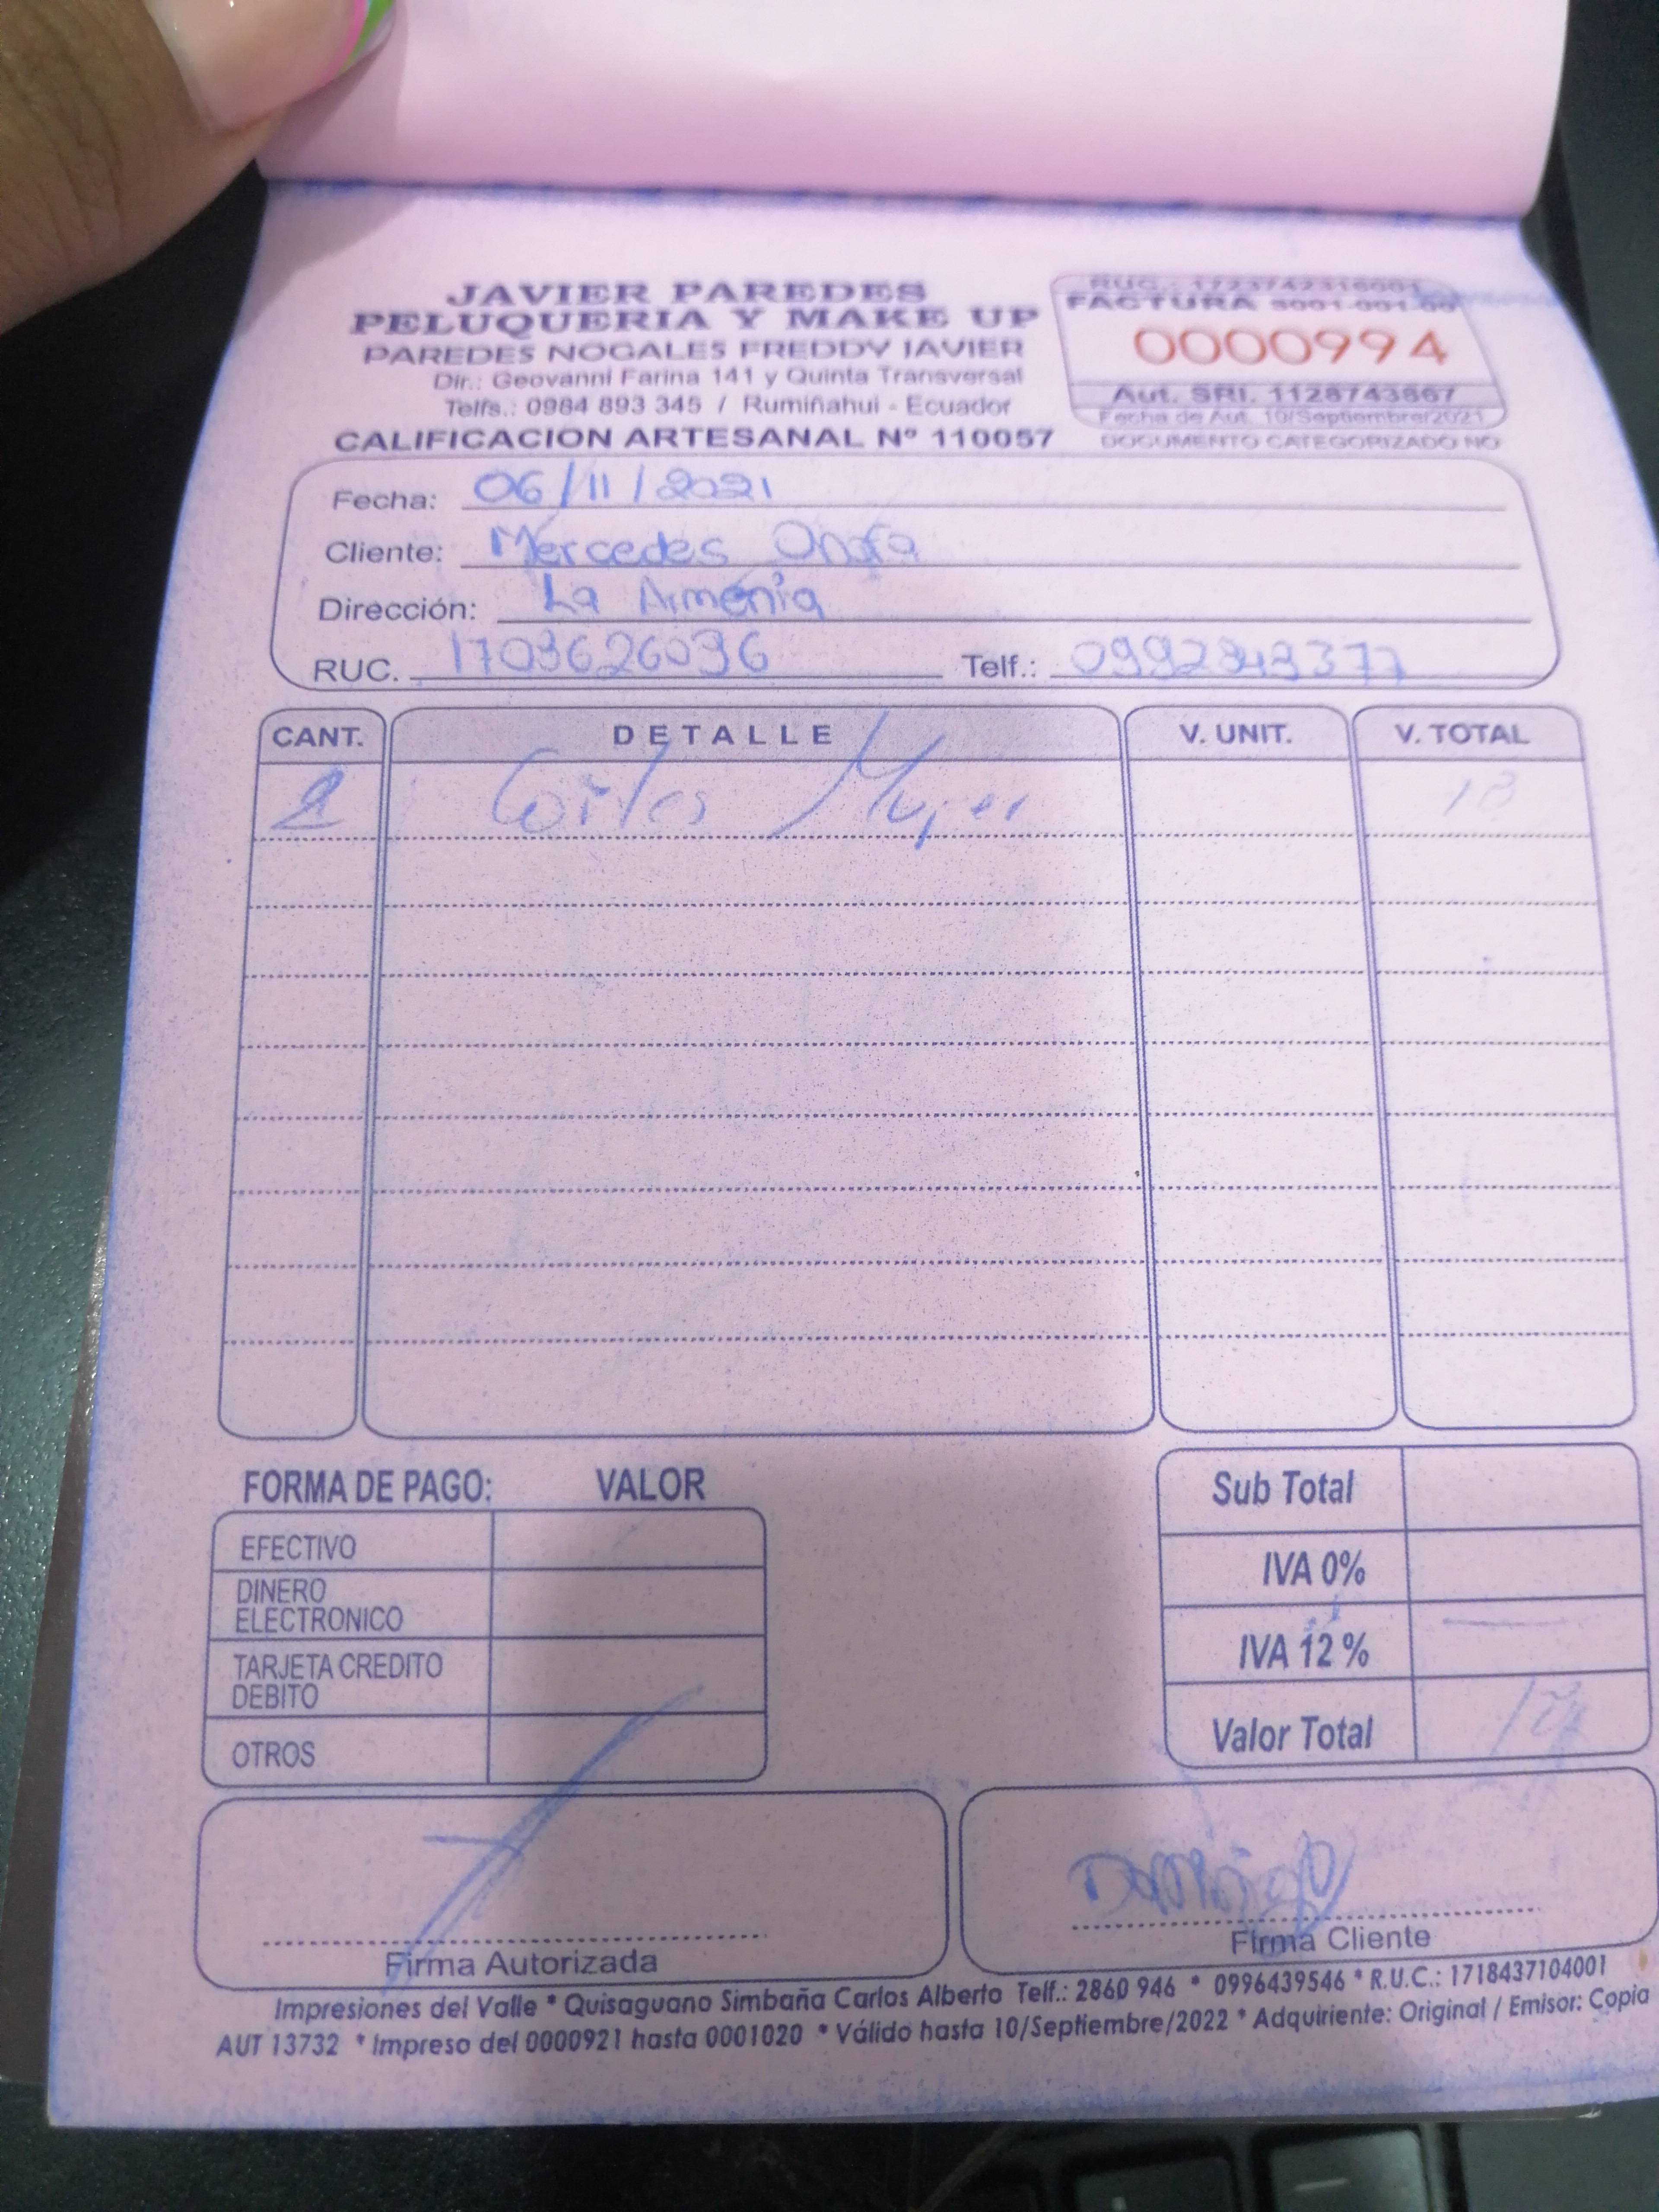 JAVIER PAREDES
PELUQUERIA Y MAKE UP
PAREDES NOGALES FREDDY JAVIER
Dir.: Geovanni Farina 141 y Quinta Transversal
Telfs.: 0984 893 345 / Rumiñahui - Ecuador
CALIFICACION ARTESANAL Nº 110057
RUC.: 1723742316001
FACTURA S001-001-00
0000994
Aut. SRI. 1128743667
Fecha de Aut. 10/Septiembre/2021
DOCUMENTO CATEGORIZADO NO
Fecha: 06/11/2021
Cliente: Mercedes
Dirección: La Armenia
RUC. 1703626096 Telf.:
CANT. DETALLE V. UNIT. V. TOTAL
2 Cortes Mujer
FORMA DE PAGO: VALOR
EFECTIVO
DINERO ELECTRONICO
TARJETA CREDITO DEBITO
OTROS
Sub Total
IVA 0%
IVA 12 %
Valor Total
Firma Autorizada
Firma Cliente
Impresiones del Valle * Quisaguano Simbaña Carlos Alberto Telf.: 2860 946 * 0996439546 * R.U.C.: 1718437104001
AUT 13732 * Impreso del 0000921 hasta 0001020 * Válido hasta 10/Septiembre/2022 * Adquiriente: Original / Emisor: Copia